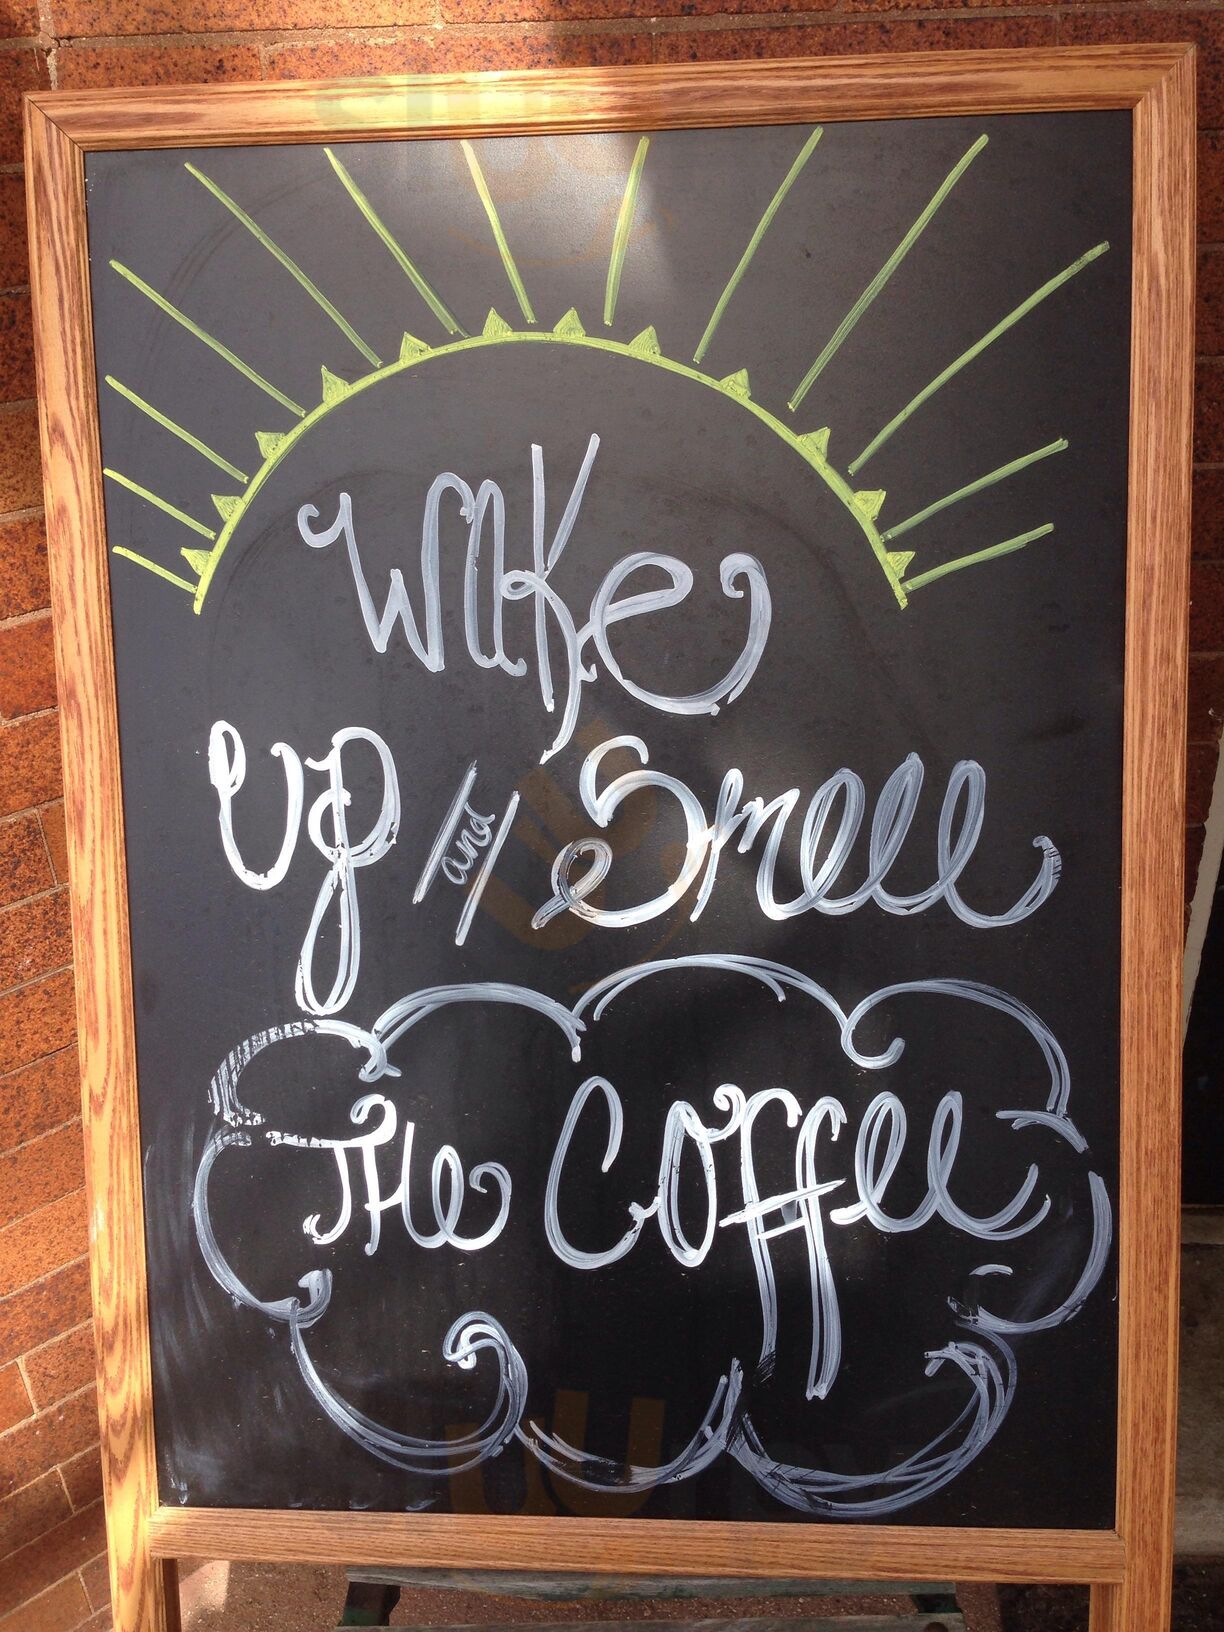 Wake
Up and Smell
The Coffee